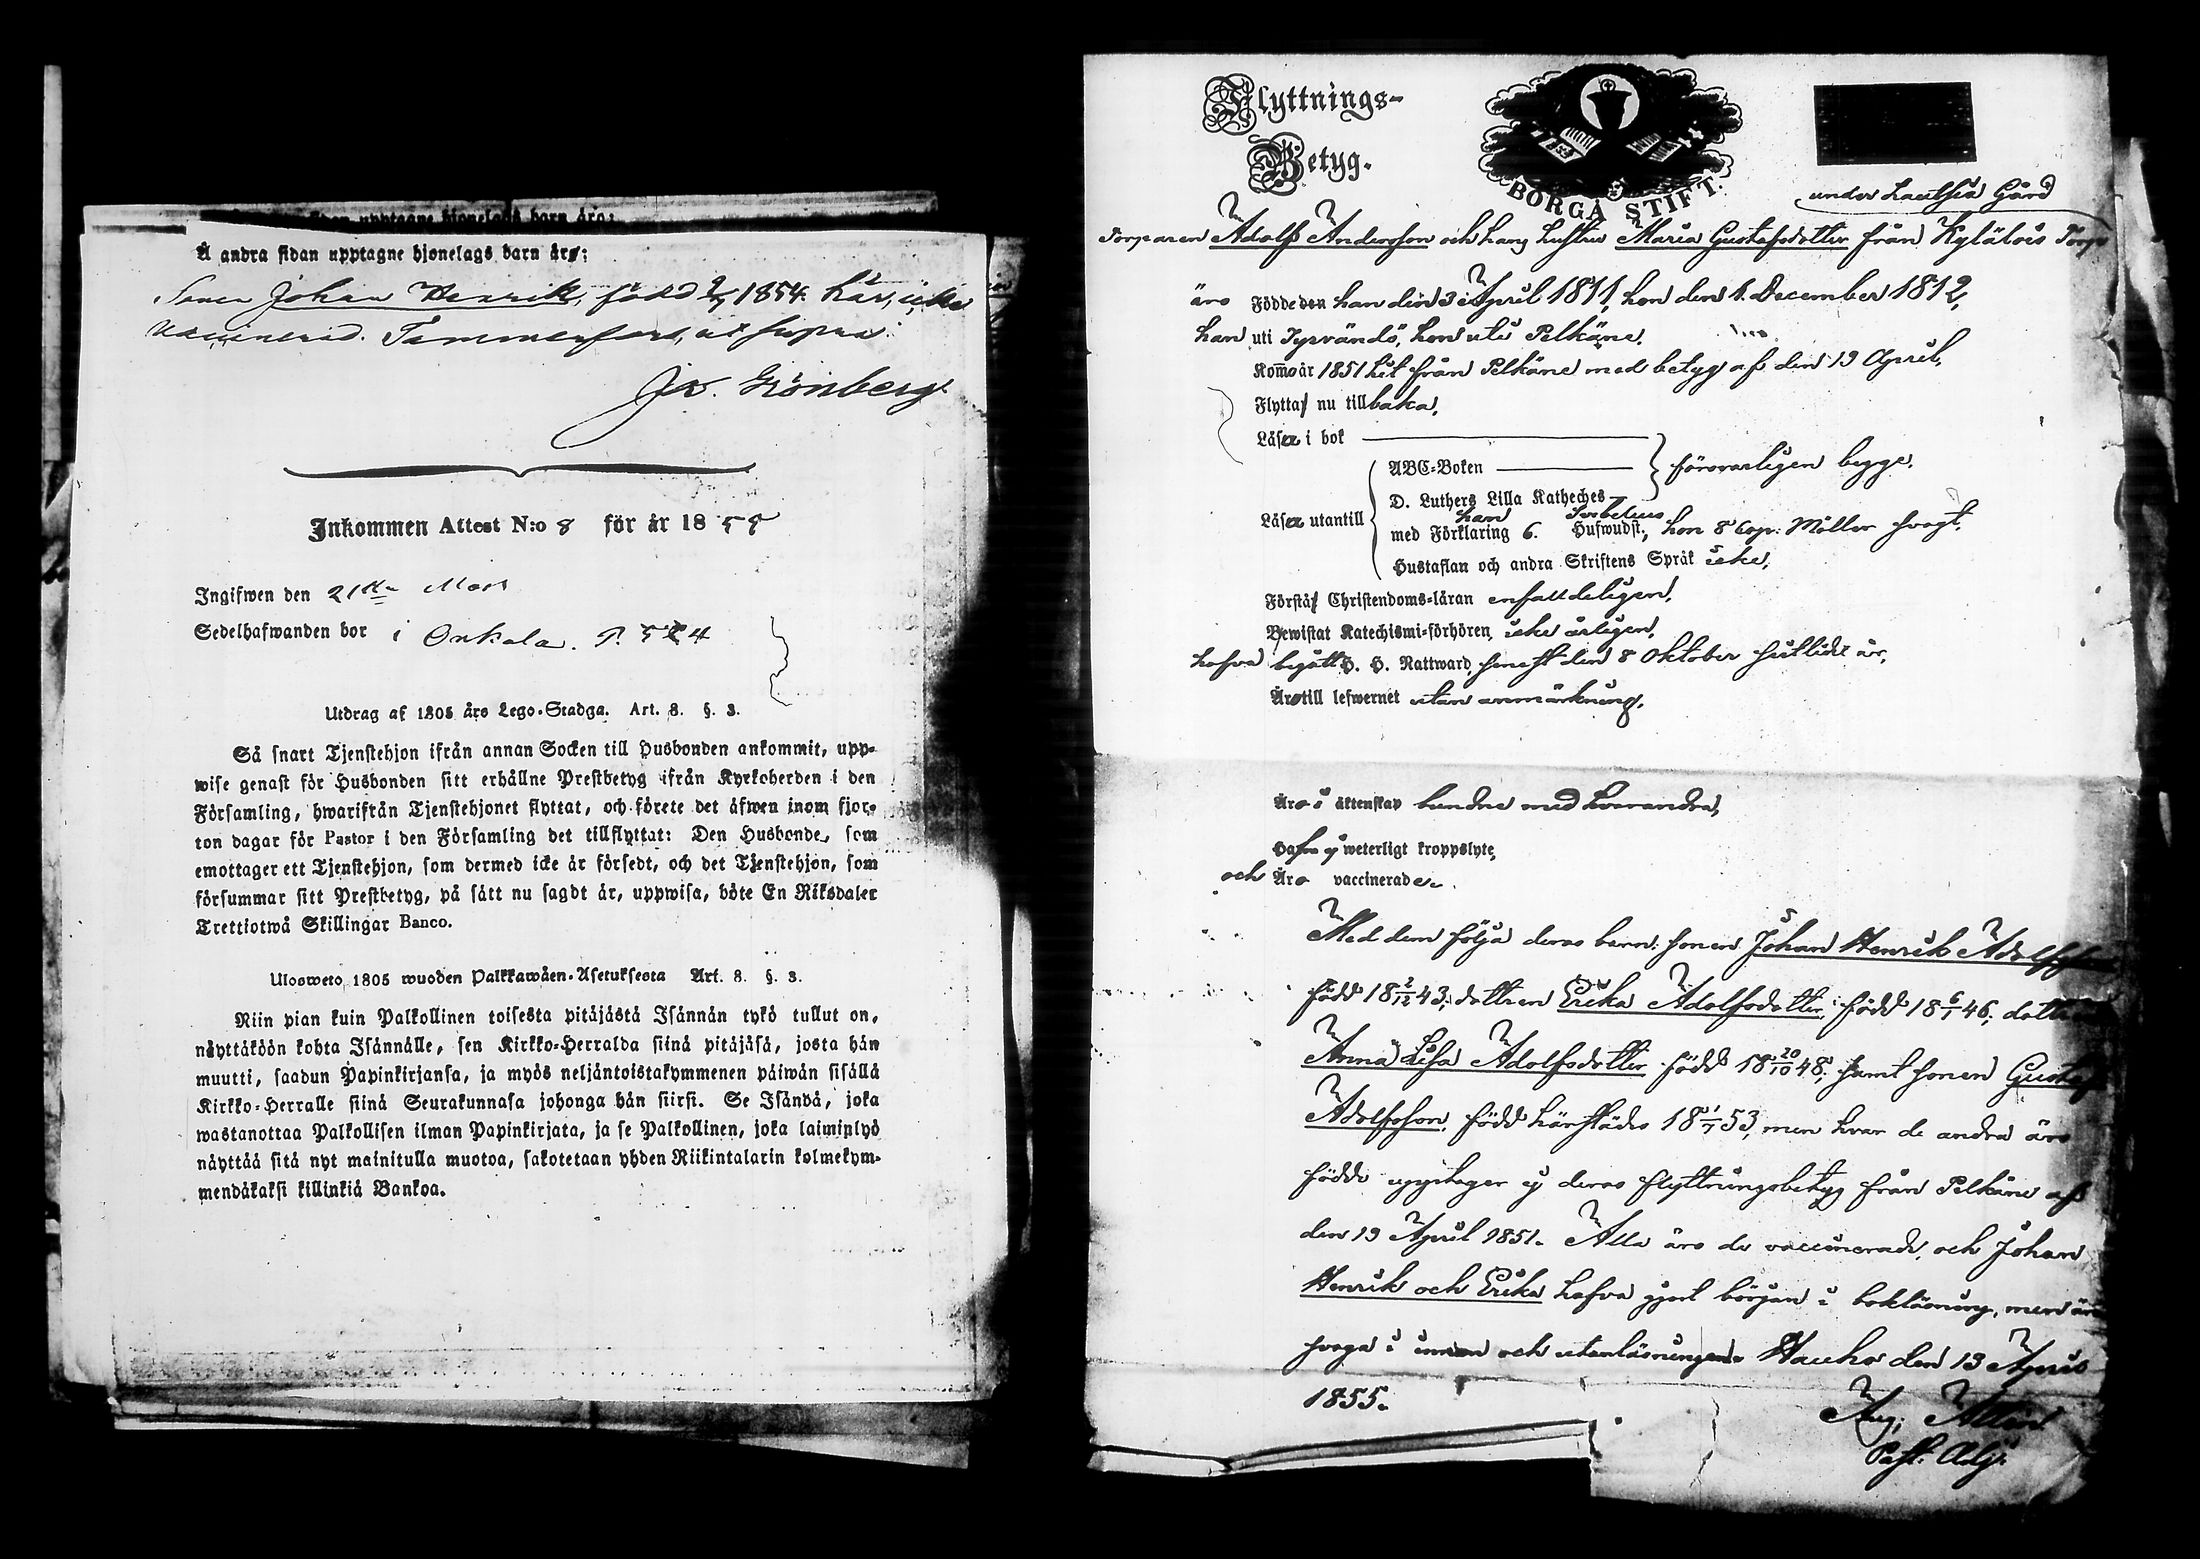 Å andra sidan upptagne hjonelags barn äro:
Sonen Johan Henrik, född 2/7 1854 här, icke
vaccinerad. Tammerfors, ut supra.
Grönberg.
Inkommen Attest N:o 8 för år 1855
Ingifwen den 21sta Mars
Sedelhafwanden bor i Onkala. P. 524
Utdrag af 1805 års Lego-Stadga. Art. 8. §. 3.
Så snart Tjenstehjon ifrån annan Socken till Husbonden ankommit, upp-
wise genast för Husbonden sitt erhållne Prestbetyg ifrån Kyrkoherden i den
Församling, hwarifrån Tjenstehjonet flyttat, och förete det äfwen inom fjor-
ton dagar för Pastor i den Församling det tillflyttat: Den Husbonde, som
emottager ett Tjenstehjon, som dermed icke är försedt, och det Tjenstehjon, som
försummar sitt Prestbetyg, på sätt nu sagdt är, uppwisa, böte En Riksdaler
Trettiotwå Skillingar Banco.
Ulosweto 1805 wuoden Palkkawäen-Asetuksesta Art. 8. §. 3.
Niin pian kuin Palkollinen toisesta pitäjästä Isännän tykö tullut on,
näyttäköön kohta Isännälle, sen Kirkko-Herralda siinä pitäjäsä, josta hän
muutti, saadun Papinkirjansa, ja myös neljäntoistakymmenen päiwän sisällä
Kirkko-Herralle siinä Seurakunnasa johonga hän siirsi. Se Isändä, joka
wastanottaa Palkollisen ilman Papinkirjata, ja se Palkollinen, joka laiminlyö
näyttää sitä nyt mainitulla muotoa, sakotetaan yhden Riikintalarin kolmekym-
mendäkaksi killinkiä Bankoa.
Flyttnings-
Betyg.
BORGÅ STIFT.
under Lautsia Gård
Torparen Adolf Andersson och hans hustru Maria Gustafsdotter från Kylälois Torp
äro Födde den han den 3 April 1811, hon den 1 December 1812,
han uti Tyrvändö, hon uti Pelkäne.
Kom år 1851 hit från Pelkäne med betyg af den 19 April.
Flytta nu tillbaka,
Läsa i bok
ABC-Boken försvarligen begge.
D. Luthers Lilla Katheches
Läsa utantill med Förklaring han 6. Svebelius Hufwudst., hon 8 cap: Möller svagt.
Hustaflan och andra Skriftens Språk icke,
Förstå Christendoms-läran enfalldeligen,
Bewistat Katechismi-förhören icke årligen,
hafva begått H. H. Nattward senast den 8 Oktober sistlidit år,
Äro till lefwernet utan anmärkning.
Äro i äktenskap bundne med hvarandra,
Hafva ej weterligt kroppslyte,
och Äro vaccinerade.
Med dem följa deras barn: sonen Johan Henrik Adolfsson
född 18 2/12 43; dottren Erika Adolfsdotter, född 18 6/1 46; dottren
Anna Lisa Adolfsdotter född 18 20/10 48; samt sonen Gustaf
Adolfsson, född härstädes 18 1/7 53, men hvar de andra äro
födde upptager ej deras flyttningsbetyg från Pelkäne af
den 19 April 1851. Alla äro de vaccinerade, och Johan
Henrik och Erika hafva gjort början i bokläsning, men äro
svaga i innan och utanläsningen. Hauho den 13 April
1855.
Aug:
Past. Adj.